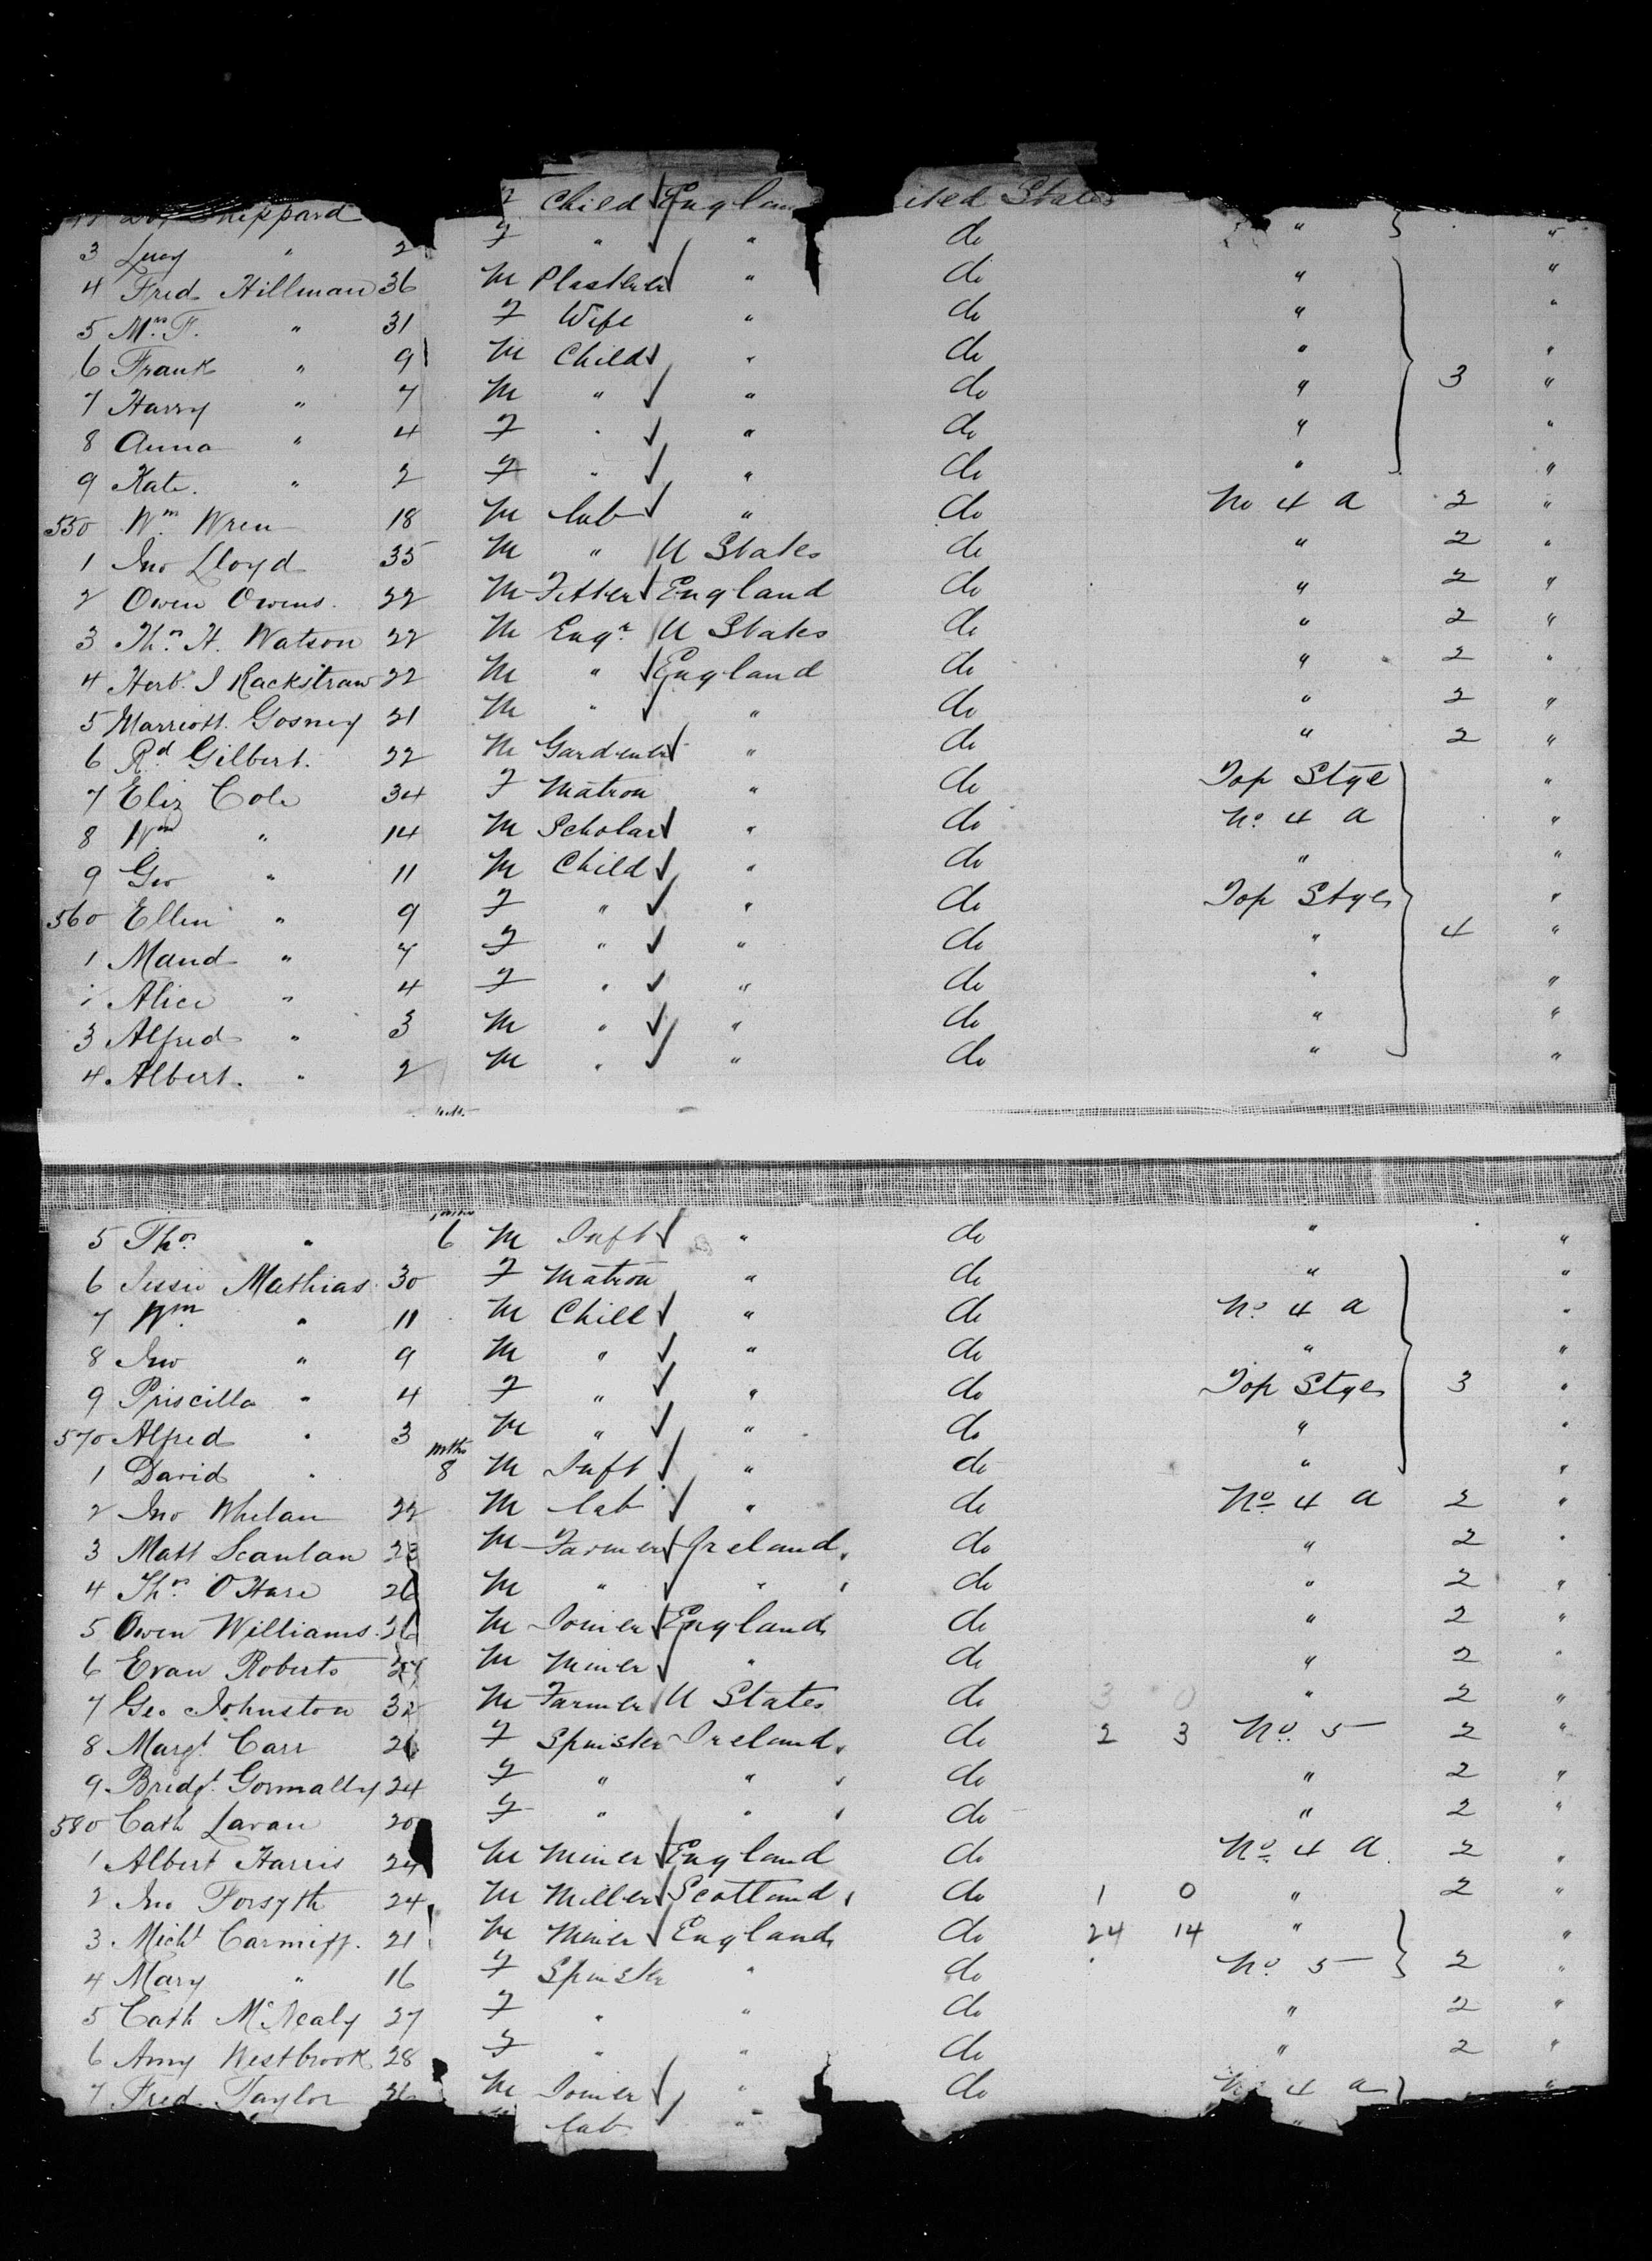 Sheppard F Child England ited States
3 Lucy " 2 F " " do " "
4 Fred Hillman 36 M Plasterer " do " "
5 Mrs F. " 31 F Wife " do " "
6 Frank " 9 M Child " do " "
7 Harry " 7 M " " do " 3 "
8 Anna " 4 F " " do " "
9 Kate. " 2 F " " do " "
550 Wm Wren 18 M Lab " do No 4 a 2 "
1 Jno Lloyd 35 M " U States do " 2 "
2 Owen Owens. 22 M Fitter England do " 2 "
3 Thos H. Watson 22 M Engr U States do " 2 "
4 Herb. J Rackstraw 22 M " England do " 2 "
5 Marriott Gosney 21 M " " do " 2 "
6 Rd Gilbert. 22 M Gardener " do " 2 "
7 Eliz Cole 34 F Matron " do Top Stge "
8 Wm " 14 M Scholar " do No. 4 a "
9 Geo " 11 M Child " do " "
560 Ellen " 9 F " " do Top Stge "
1 Maud " 7 F " " do " 4 "
Alice " 4 F " " do " "
3 Alfred " 3 M " " do " "
4 Albert. " 2 M " " do " "
mths
5 Thos " 6 M Inft " do " "
6 Jessie Mathias. 30 F Matron " do " "
7 Wm " 11 M Child " do No. 4 a "
8 Jno " 9 M " " do " "
9 Priscilla " 4 F " " do Top Stge 3 "
570 Alfred " 3 M " " do " "
mths
1 David " 8 M Inft " do " "
2 Jno Whelan 22 M Lab " do No. 4 a 2 "
3 Matt Scanlan 23 M Farmer Ireland do " 2 "
4 Thos O'Hare 26 M " " do " 2 "
5 Owen Williams. 26 M Joiner England do " 2 "
6 Evan Roberts M Miner " do " 2 "
7 Geo Johnston 32 M Farmer U States do 3 0 " 2 "
8 Margt Carr 26 F Spinster Ireland do 2 3 No. 5 2 "
9 Bridgt Gormally 24 F " " do " 2 "
580 Cath Lavan 20 F " " do " 2 "
1 Albert Harris 24 M Miner England do No. 4 a 2 "
2 Jno Forsyth 24 M Miller Scotland do 1 0 " 2 "
3 Michl 21 M Miner England do 24 14 " "
4 Mary " 16 F Spinster " do No. 5 2 "
5 Cath McNealy 27 F " " do " 2 "
6 Amy Westbrook 28 F " " do " 2 "
7 Fred Taylor M Joiner " do No 4 a "
Lab " "